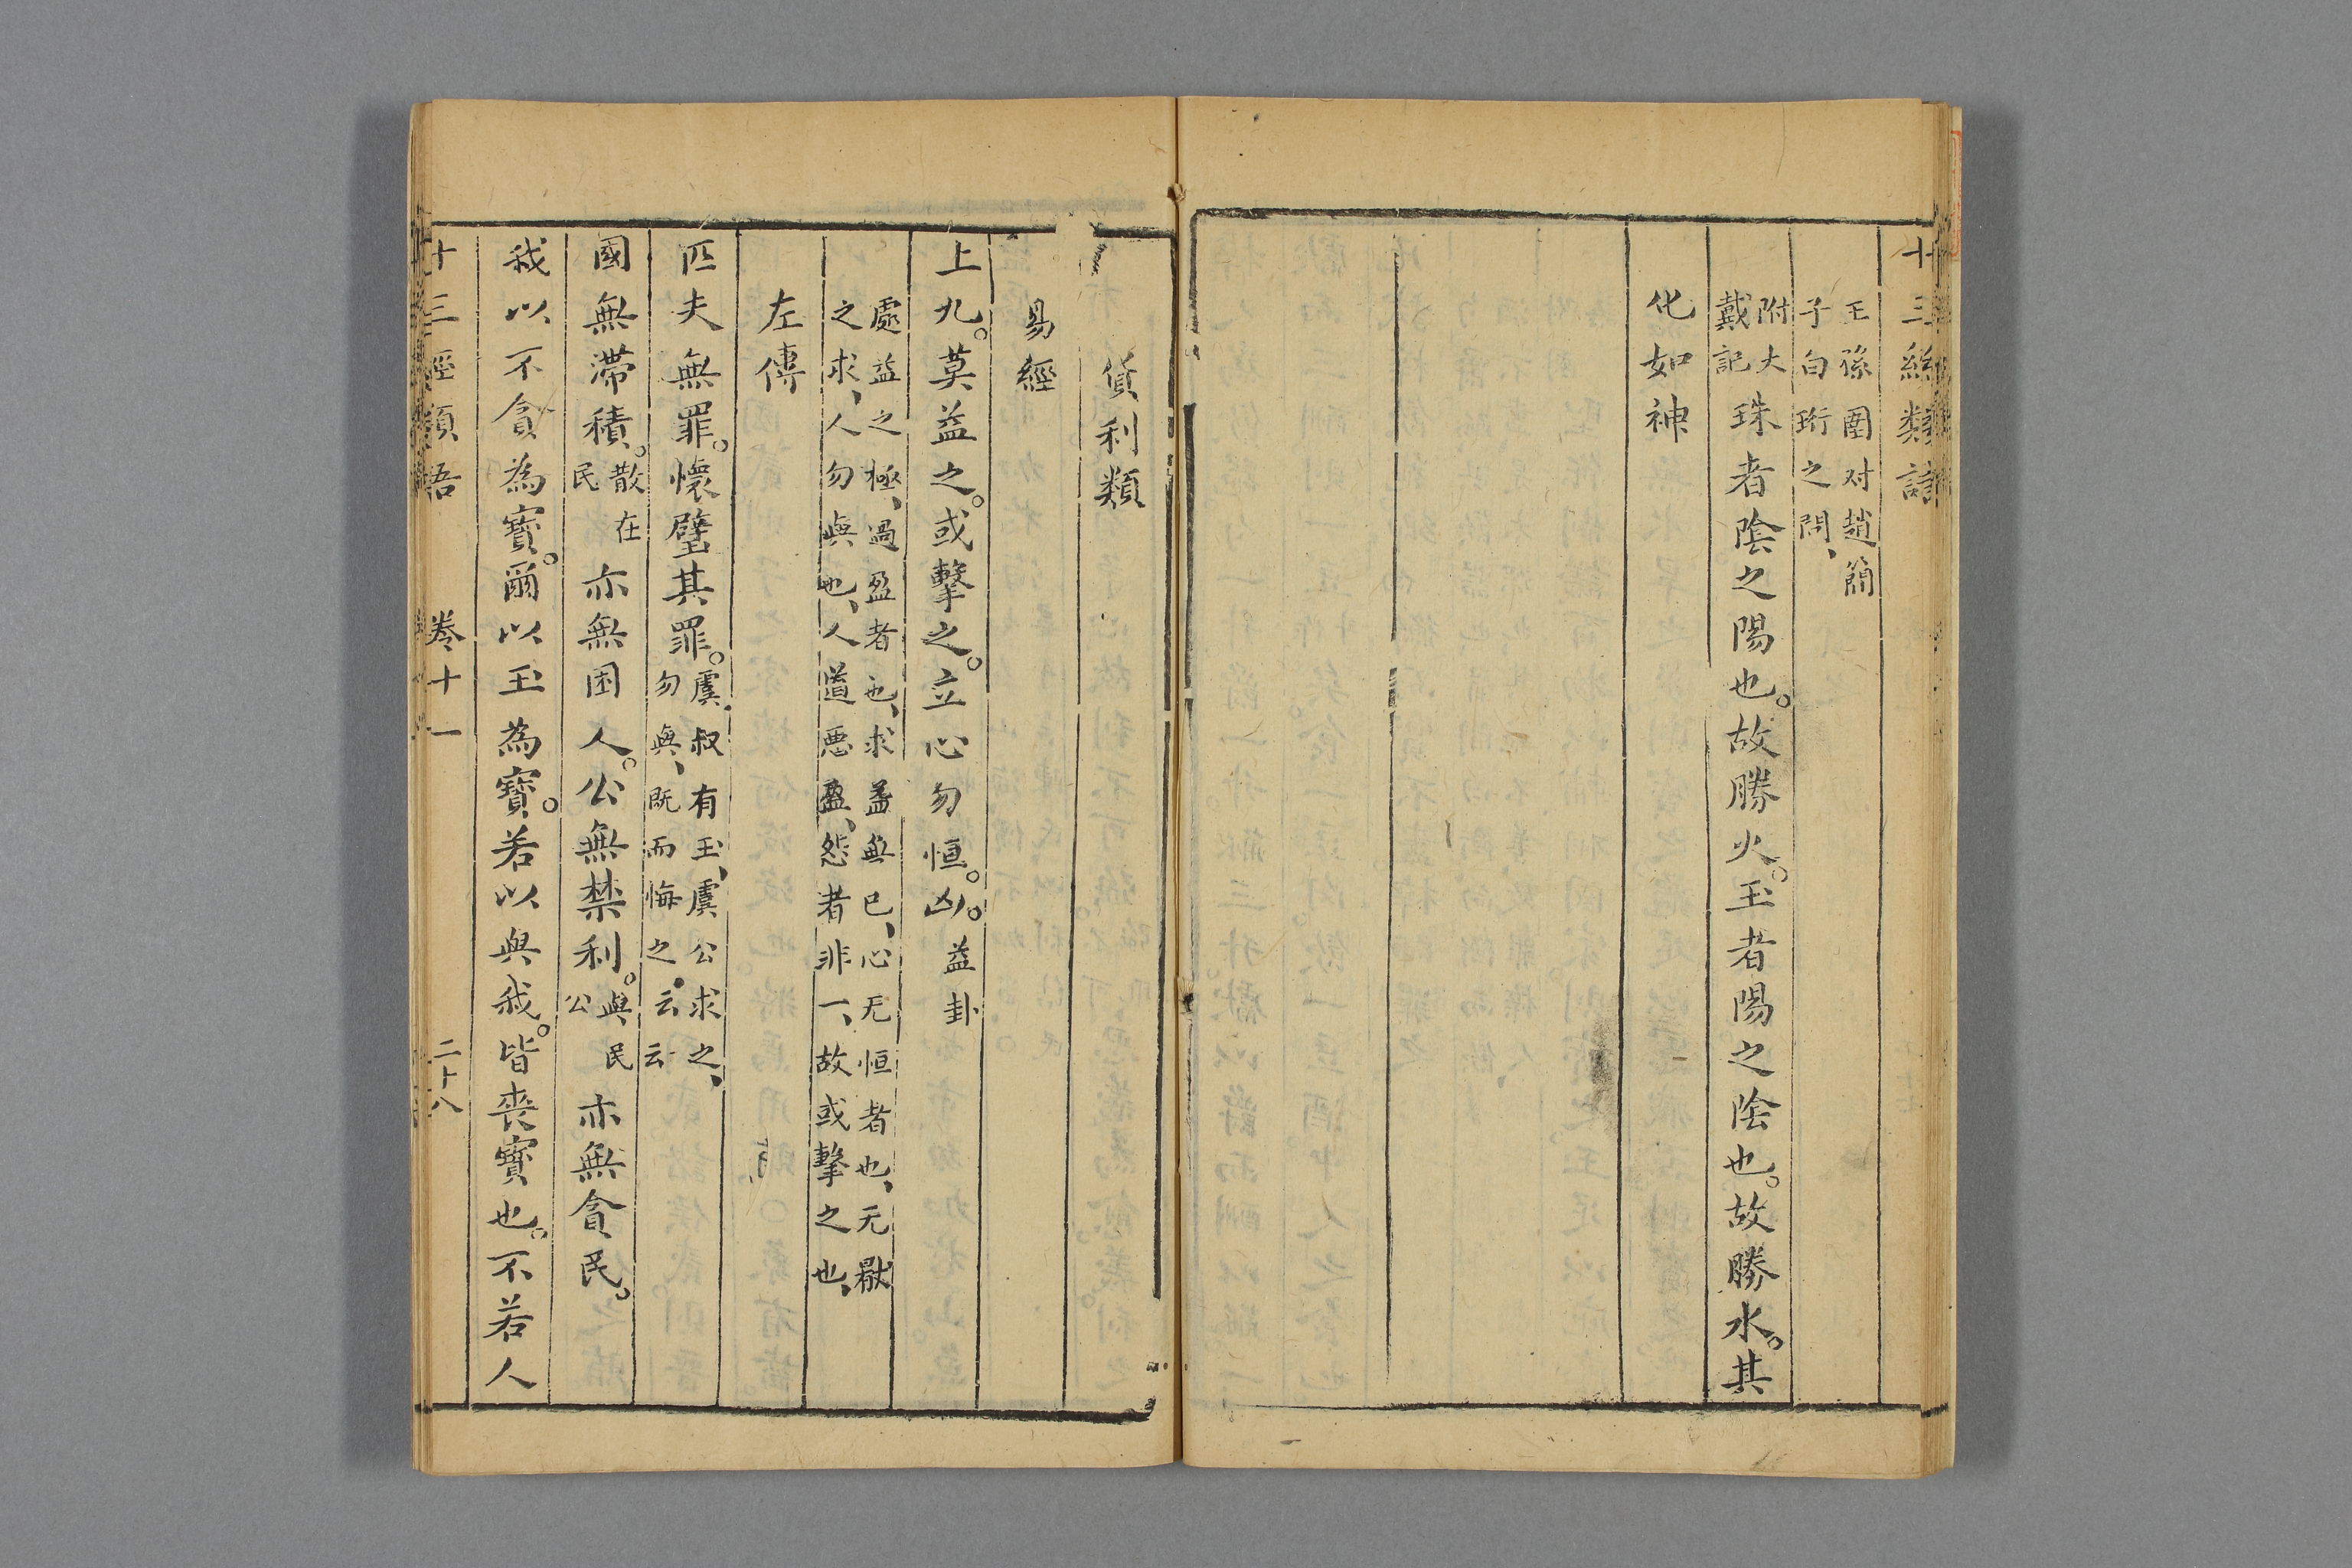 十三經類語
王孫圉对趙簡
子白珩之問、
附大戴記珠者陰之陽也。故勝火。玉者陽之陰也。故勝水。其
化如神
貨利類
易經
上九。莫益之。或擊之。立心勿恒。凶。益卦
處益之極、過盈者也、求益無已、心无恒者也、无厭
之求、人勿與也、人道惡盈、怨者非一、故或擊之也、
左傳
匹夫無罪。懷璧其罪。虞叔有玉、虞公求之、勿與、既而悔之。云云
國無滯積。散在民亦無困人。公無禁利。與民公亦無貪民。
我以不貪為寶。爾以玉為寶。若以與我。皆喪寶也。不若人
十三經類語 卷十一 二十八